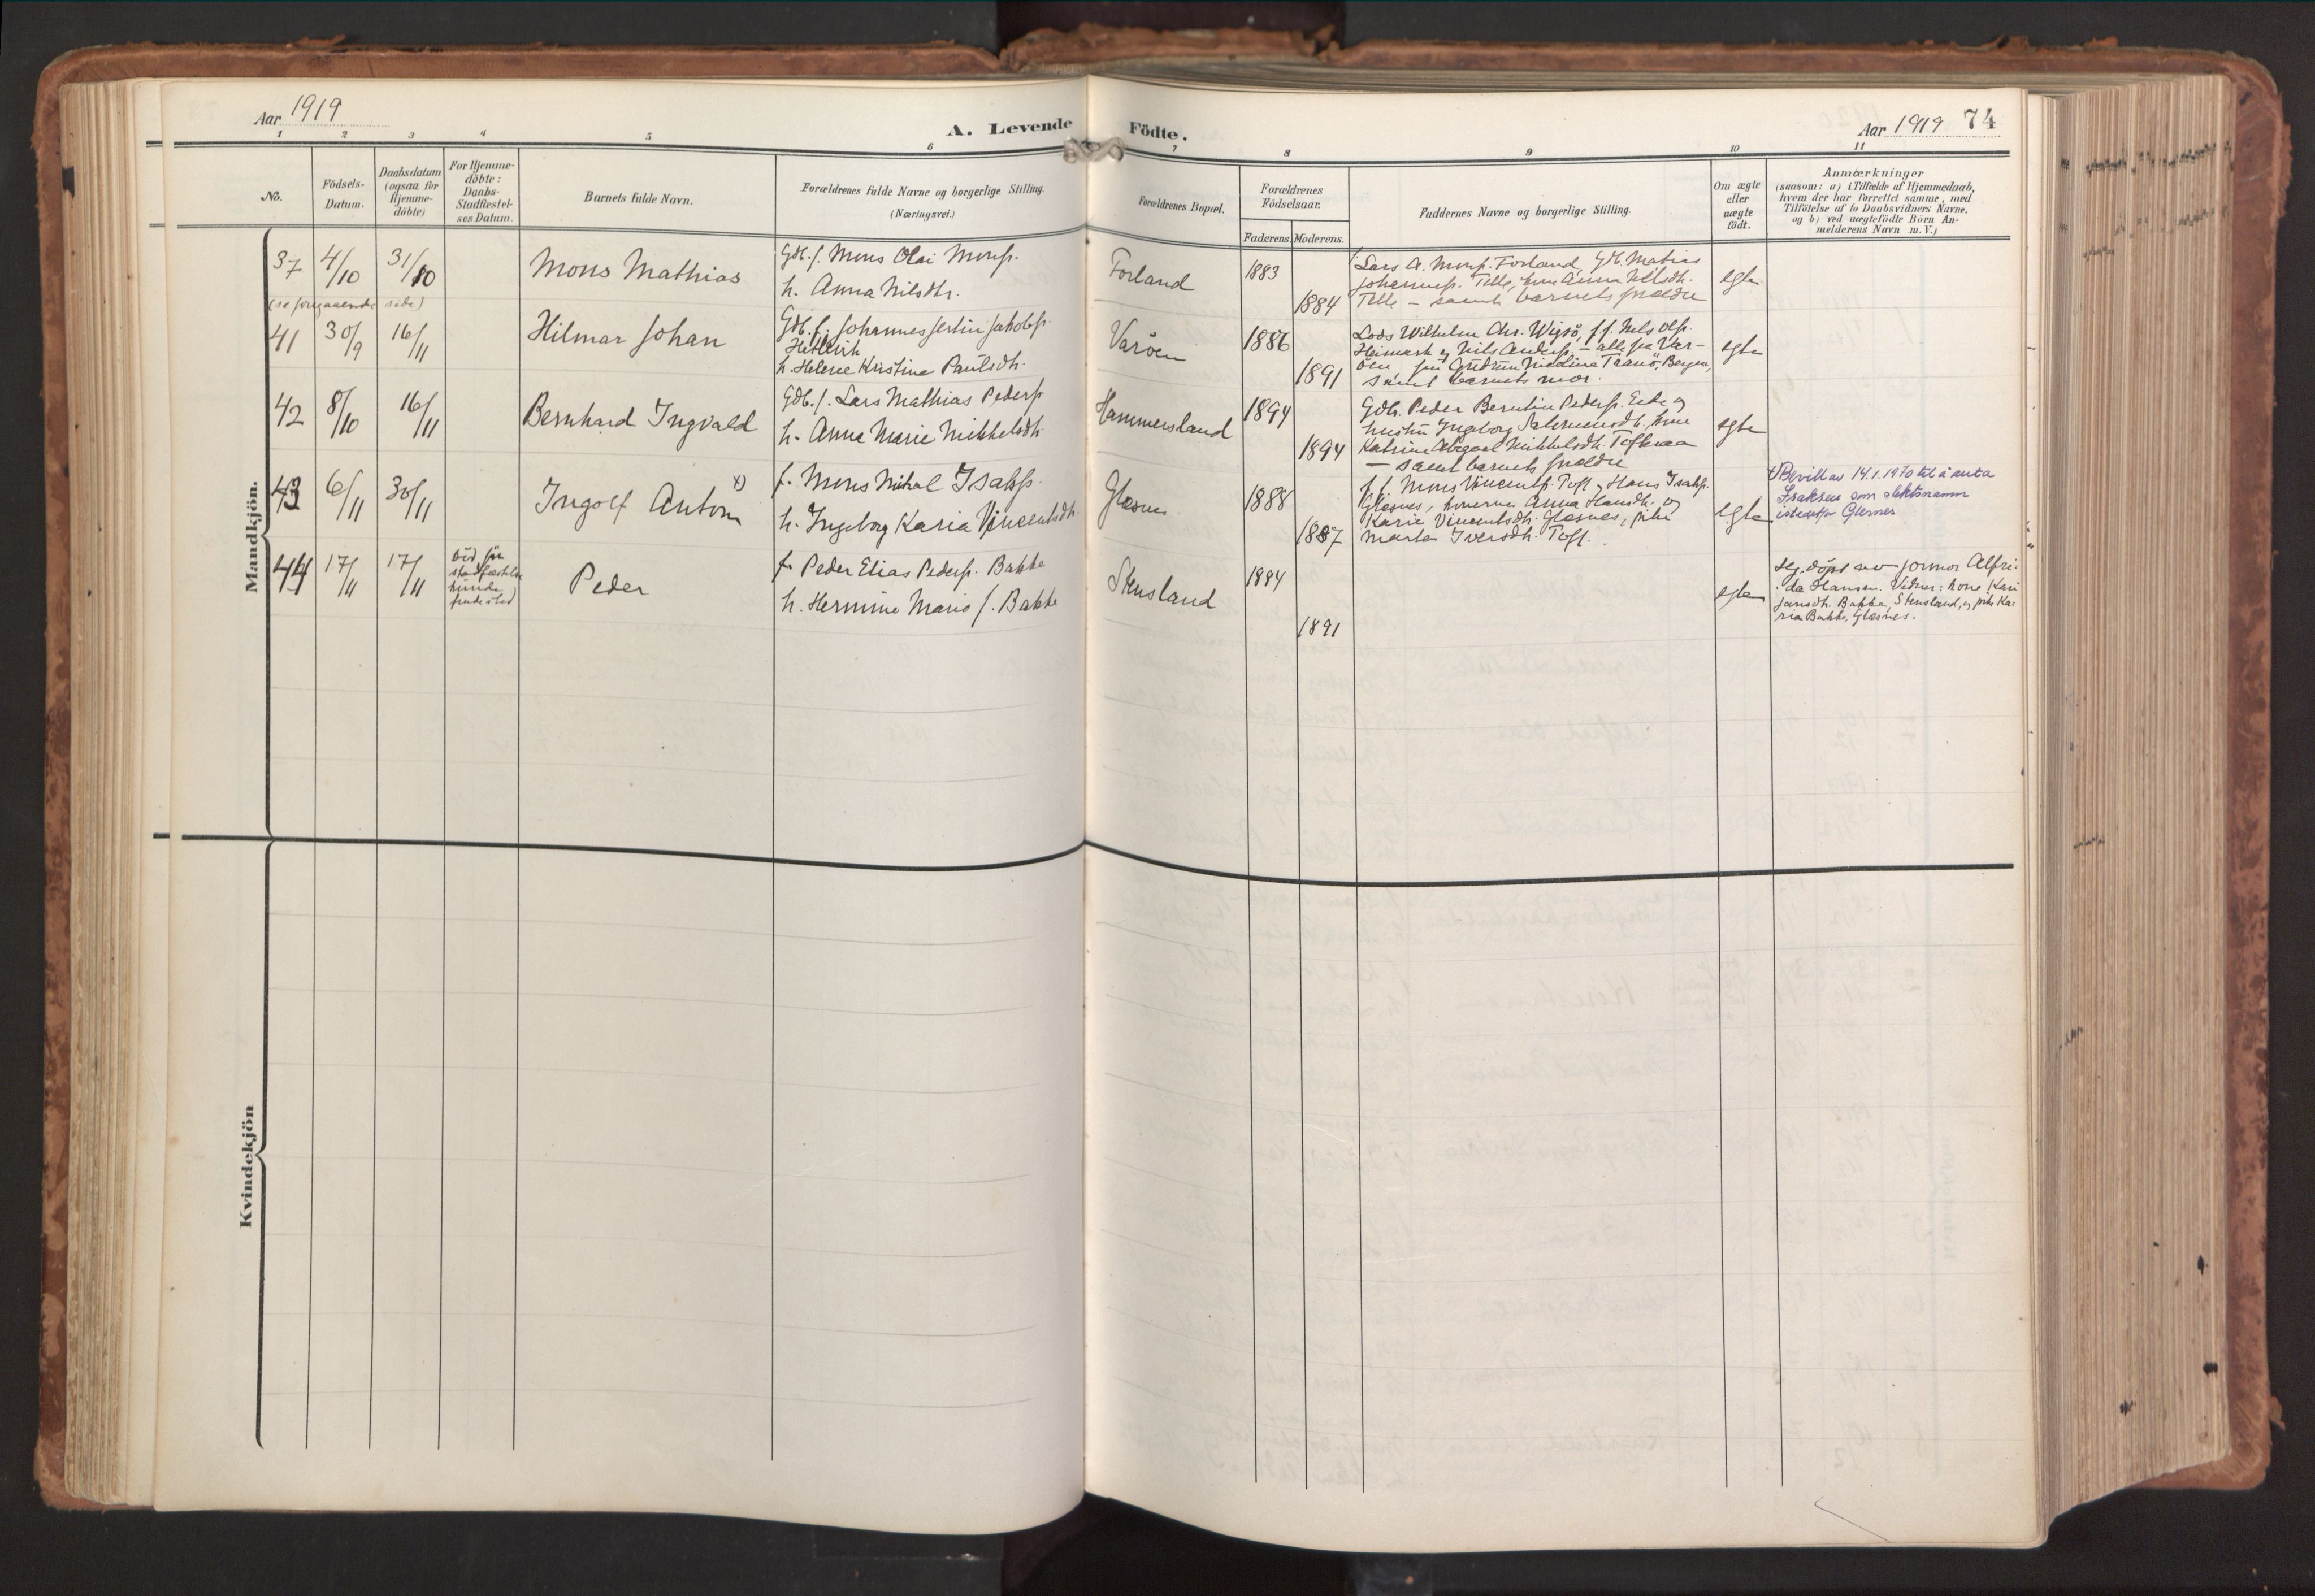 Aar 1919
A. Levende Födte.
Aar 1919 74
1 2 3 4 5 6 7 8 9 10 11
No.
Födsels-
Datum.
Daabsdatum
(ogsaa for
Hjemme-
döbte)
For Hjemme-
döbte:
Daabs-
Stadfæstel-
ses Datum.
Barnets fulde Navn.
Forældrenes fulde Navne og borgerlige Stilling.
(Næringsvei.)
Forældrenes Bopæl.
Forældrenes
Födselsaar.
Faderens. Moderens.
Faddernes Navne og borgerlige Stilling.
Om ægte
eller
uægte
födt.
Anmærkninger
(saasom: a) i Tilfælde af Hjemmedaab,
hvem der har forrettet samme, med
Tilföielse af to Daabsvidners Navne.
og b) ved uægtefödte Börn An-
melderens Navn m. V.)
Mandkjön.
37 4/10 31/10
Mons Mathias
Gdb. f. Mons Olai Monss.
h. Anna Nilsdtr.
Forland
1883
1884
Lars A. Monss. Forland, Gdb. Matias
Johanness. Telle, kone Anna Nilsdtr.
Telle – samt barnets foreldre
egte
(se foregaaende side)
41 30/9 16/11
Hilmar Johan
Gdb. f. Johannes Jertin Jakobss.
h. Helene Kristine Paulsdtr.
Varöen
1886
1891
Lods Wilhelm Chr. Wigsö, f. f. Nils Ols.
Heimark og Nils Anderss. – alle fra Var-
öen Gudrun Nicoline Tranö, Bergen,
samt barnets mor.
egte
42 8/10 16/11
Bernhard Ingvald
Gdb. f. Lars Mathias Peders.
h. Anna Marie Mikkelsdtr.
Hammersland
1894
1894
Gdb. Peder Berntin Peders. Eide og
hustru Ingeborg Salomonsdtr., kone
Katrine Abigael Mikkelsdtr. Toftevaa
– samt barnets foreldre
egte
43 6/11 30/11
Ingolf Anton x)
f. Mons Mikal Isakss.
h. Ingeborg Karia Vincentsdtr.
Glesnes
1888
1887
f. f. Mons Vincents. Toft, Hans Isakss.
Glesnes, konerne Anna Hansdtr. og
Karie Vincentsdtr. Glesnes, pike
Marta Iversdtr. Toft.
egte
x) Bevill. av 14.1.1970 til å anta
Isaksen som slektsnamn
istedenfor Glesnes
44 17/11 17/11
död för
stadfæstelse
kunde
finde sted
Peder
f. Peder Elias Peders. Bakke
h. Hermine Marie f. Bakke
Stensland
1884
1891
egte
Hj. döpt av jormor Alfri-
da Hansen. Vidner: kone Kari
Jansdtr. Bakke, Stensland, og pike Ka-
ria Bakke, Glesnes.
Kvindekjön